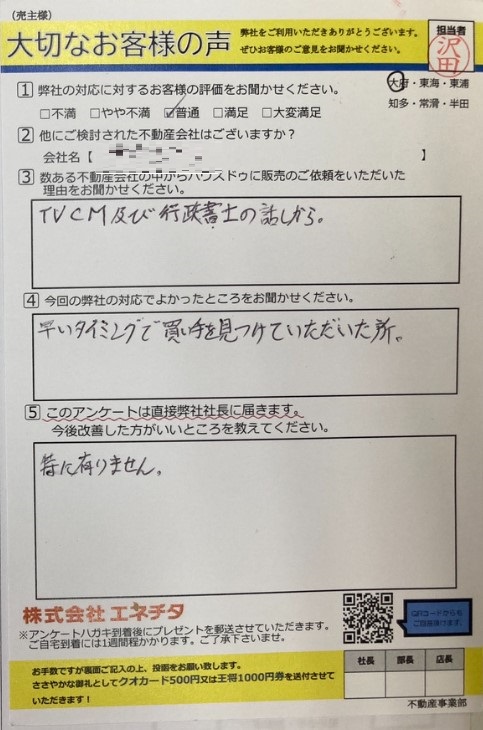 (売主様)
大切なお客様の声
弊社をご利用いただきありがとうございます。
ぜひお客様のご意見をお聞かせください。
担当者
沢田
大府・東海・東浦
知多・常滑・半田
1 弊社の対応に対するお客様の評価をお聞かせください。
□不満 □やや不満 ☑普通 □満足 □大変満足
2 他にご検討された不動産会社はございますか?
会社名【 】
3 数ある不動産会社の中からハウスドゥに販売のご依頼をいただいた
理由をお聞かせください。
TVCM及び行政書士の話しから。
4 今回の弊社の対応でよかったところをお聞かせください。
早いタイミングで買い手を見つけていただいた所。
5 このアンケートは直接弊社社長に届きます。
今後改善した方がいいところを教えてください。
特に有りません。
株式会社 エネチタ
※アンケートハガキ到着後にプレゼントを郵送させていただきます。
ご自宅到着には1週間程かかります。ご了承下さいませ。
QRコードからも
ご回答頂けます。
お手数ですが裏面ご記入の上、投函をお願い致します。
ささやかな御礼としてクオカード500円又は王将1000円券を送付させて
いただきます!
社長 部長 店長
不動産事業部